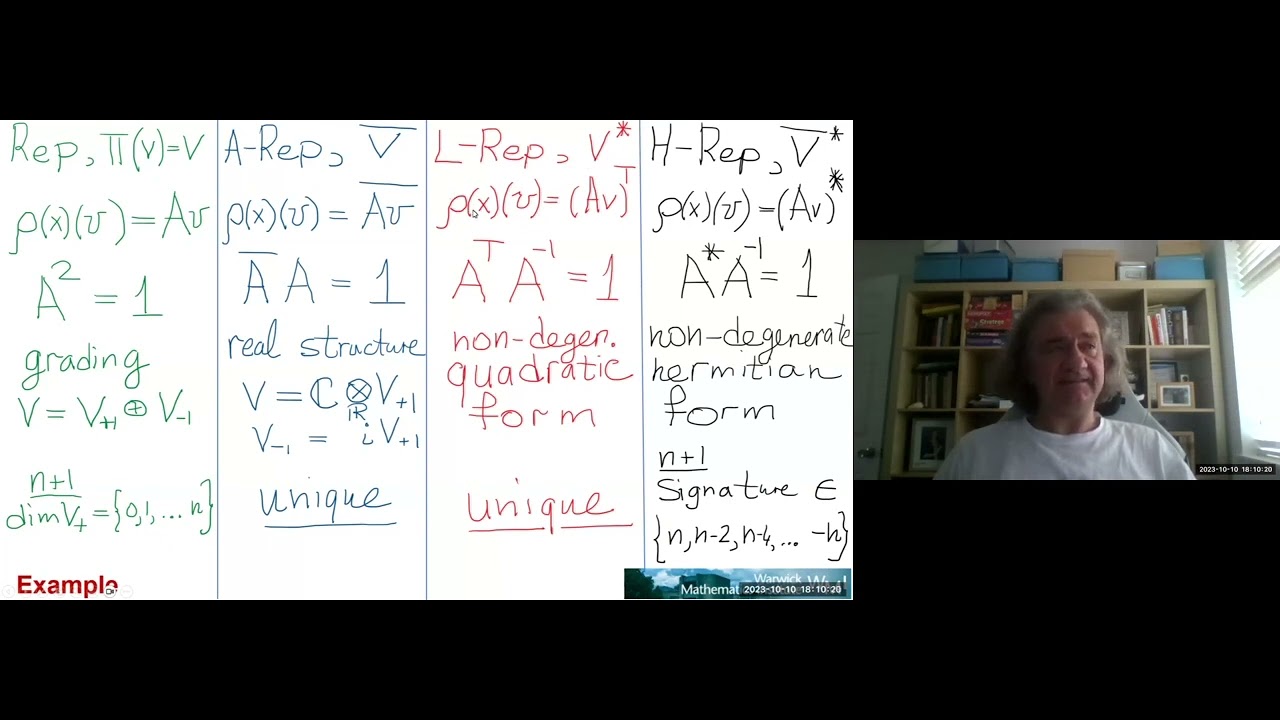 Rep, π(v)=V
ρ(x)(v) = Av
A² = 1
grading
V = V₊₁ ⊕ V₋₁
n+1
dimV₊ = {0,1,...n}
A-Rep, V̅
ρ(x)(v) = A̅v̅
A̅ A = 1
real structure
V = ℂ ⊗ V₊₁
ℝ
V₋₁ = iV₊₁
unique
L-Rep, V*
ρ(x)(v) = (Av)ᵀ
Aᵀ A⁻¹ = 1
non-degen.
quadratic
form
unique
H-Rep, V̅*
ρ(x)(v) = (Av)*
A* A⁻¹ = 1
non-degenerate
hermitian
form
n+1
Signature ∈
{n, n-2, n-4, ... -n}
Example
Warwick
Mathemat
2023-10-10 18:10:20
Strategy
2023-10-10 18:10:20